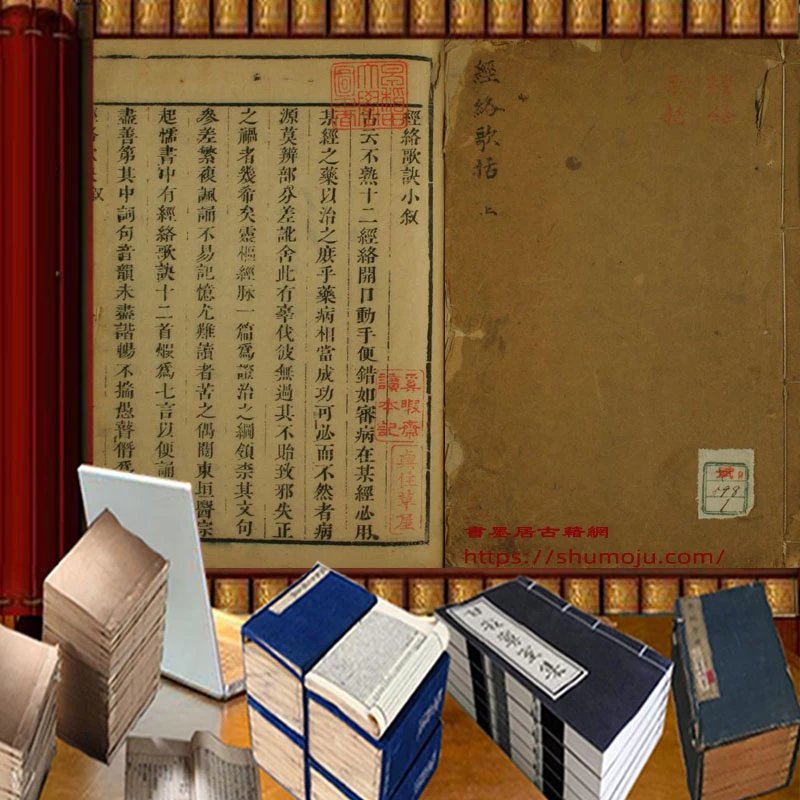 經絡歌訣小叙
古云不熟十二經絡開口動手便錯如審病在某經必用
某經之藥以治之庶乎藥病相當成功可必而不然者病
源莫辨部分差訛舍此有辜伐彼無過其不貽致邪失正
之禍者幾希矣靈樞經脉一篇爲證治之綱領柰其文句
參差繁複諷誦不易記憶尤難讀者苦之偶閱東垣醫宗
起懦書中有經絡歌訣十二首嘏爲七言以便誦
盡善第其中詞句音韻未盡諧暢不揣愚瞽僭爲
奚暇齋
讀本記
經絡歌括 上
598
1
書墨居古籍網
https://shumoju.com/